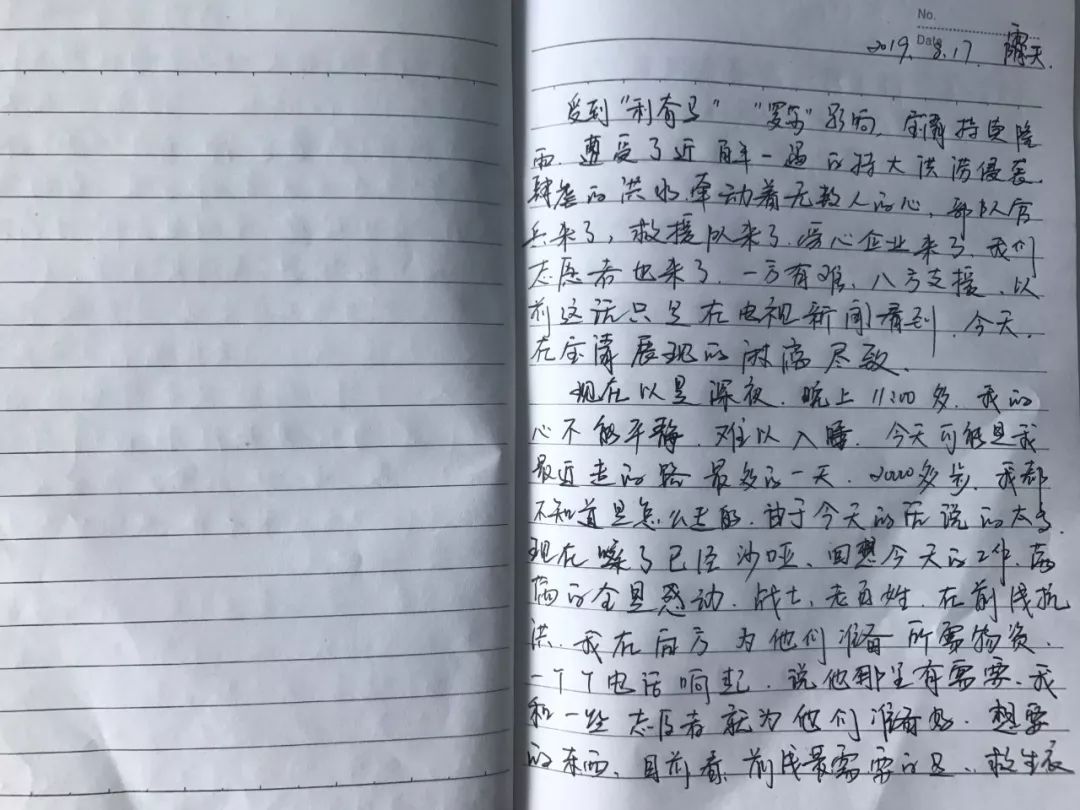 No.
Date
2019. 8. 17. 阴天.
受到“利奇马” “罗莎”影响, 宝清持续降
雨. 遭受了近百年一遇的特大洪涝侵袭.
肆虐的洪水. 牵动着无数人的心, 部队官
兵来了, 救援队来了. 爱心企业来了. 我们
志愿者也来了. 一方有难, 八方支援. 以
前这话只是在电视新闻看到. 今天.
在宝清展现的淋漓尽致.
现在以是深夜. 晚上11:00多. 我的
心不能平静. 难以入睡. 今天可能是我
最近走的路最多的一天. 20000多步. 我都
不知道是怎么走的. 由于今天的话说的太多
现在嗓子已经沙哑. 回想今天的工作. 满
满的全是感动. 战士, 老百姓. 在前线抗
洪. 我在后方为他们准备所需物资.
一个个电话响起. 说他那里有需要. 我
和一些志愿者就为他们准备好. 想要
的东西. 目前看. 前线最需要的是.. 救生衣